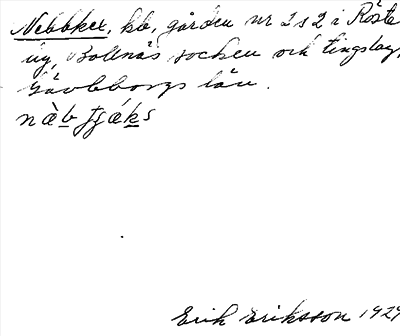 Nebbkex, kb, gården nr 2 s 2 i Röste
by, Bollnäs socken och tingslag,
Gävleborgs län.
Erik Eriksson 1929